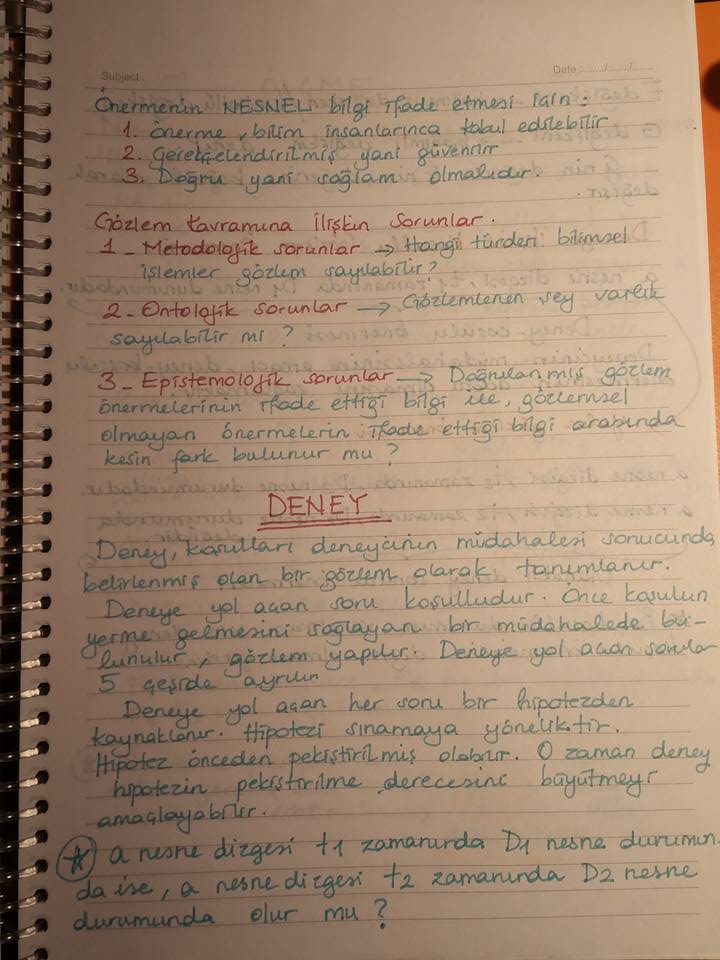 Subject :
Date : ....../....../......
Önermenin NESNEL bilgi ifade etmesi için :
1. Önerme, bilim insanlarınca kabul edilebilir
2. Gerekçelendirilmiş yani güvenilir
3. Doğru yani sağlam olmalıdır.
Gözlem kavramına ilişkin sorunlar.
1 - Metodolojik sorunlar → Hangi türden bilimsel
işlemler gözlem sayılabilir?
2 - Ontolojik sorunlar → Gözlemlenen şey varlık
sayılabilir mi ?
3 - Epistemolojik sorunlar → Doğrulanmış gözlem
önermelerinin ifade ettiği bilgi ile, gözlemsel
olmayan önermelerin ifade ettiği bilgi arasında
kesin fark bulunur mu ?
DENEY
Deney, koşulları deneycinin müdahalesi sonucunda
belirlenmiş olan bir gözlem olarak tanımlanır.
Deneye yol açan soru koşulludur. Önce koşulun
yerine gelmesini sağlayan bir müdahalede bu-
lunulur, gözlem yapılır. Deneye yol açan sorular
5 çeşide ayrılır
Deneye yol açan her soru bir hipotezden
kaynaklanır. Hipotezi sınamaya yöneliktir.
Hipotez önceden pekiştirilmiş olabilir. O zaman deney
hipotezin pekiştirilme derecesini büyütmeyi
amaçlayabilir.
* a nesne dizgesi t1 zamanında D1 nesne durumun-
da ise, a nesne dizgesi t2 zamanında D2 nesne
durumunda olur mu ?